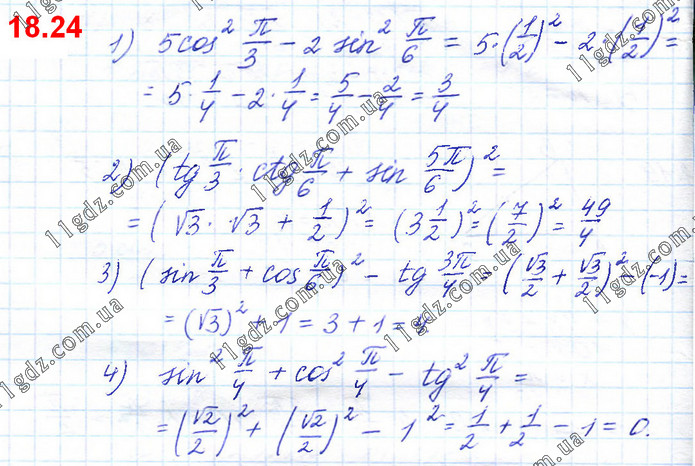 18.24
1) 5cos² π/3 - 2 sin² π/6 = 5·(1/2)² - 2·(1/2)² =
= 5·1/4 - 2·1/4 = 5/4 - 2/4 = 3/4
2) (tg π/3 · ctg π/6 + sin 5π/6)² =
= (√3 · √3 + 1/2)² = (3 1/2)² = (7/2)² = 49/4
3) (sin π/3 + cos π/6)² - tg 3π/4 = (√3/2 + √3/2)² - (-1) =
= (√3)² + 1 = 3 + 1 = 4
4) sin² π/4 + cos² π/4 - tg² π/4 =
= (√2/2)² + (√2/2)² - 1² = 1/2 + 1/2 - 1 = 0.
11gdz.com.ua
11gdz.com.ua
11gdz.com.ua
11gdz.com.ua
11gdz.com.ua
11gdz.com.ua